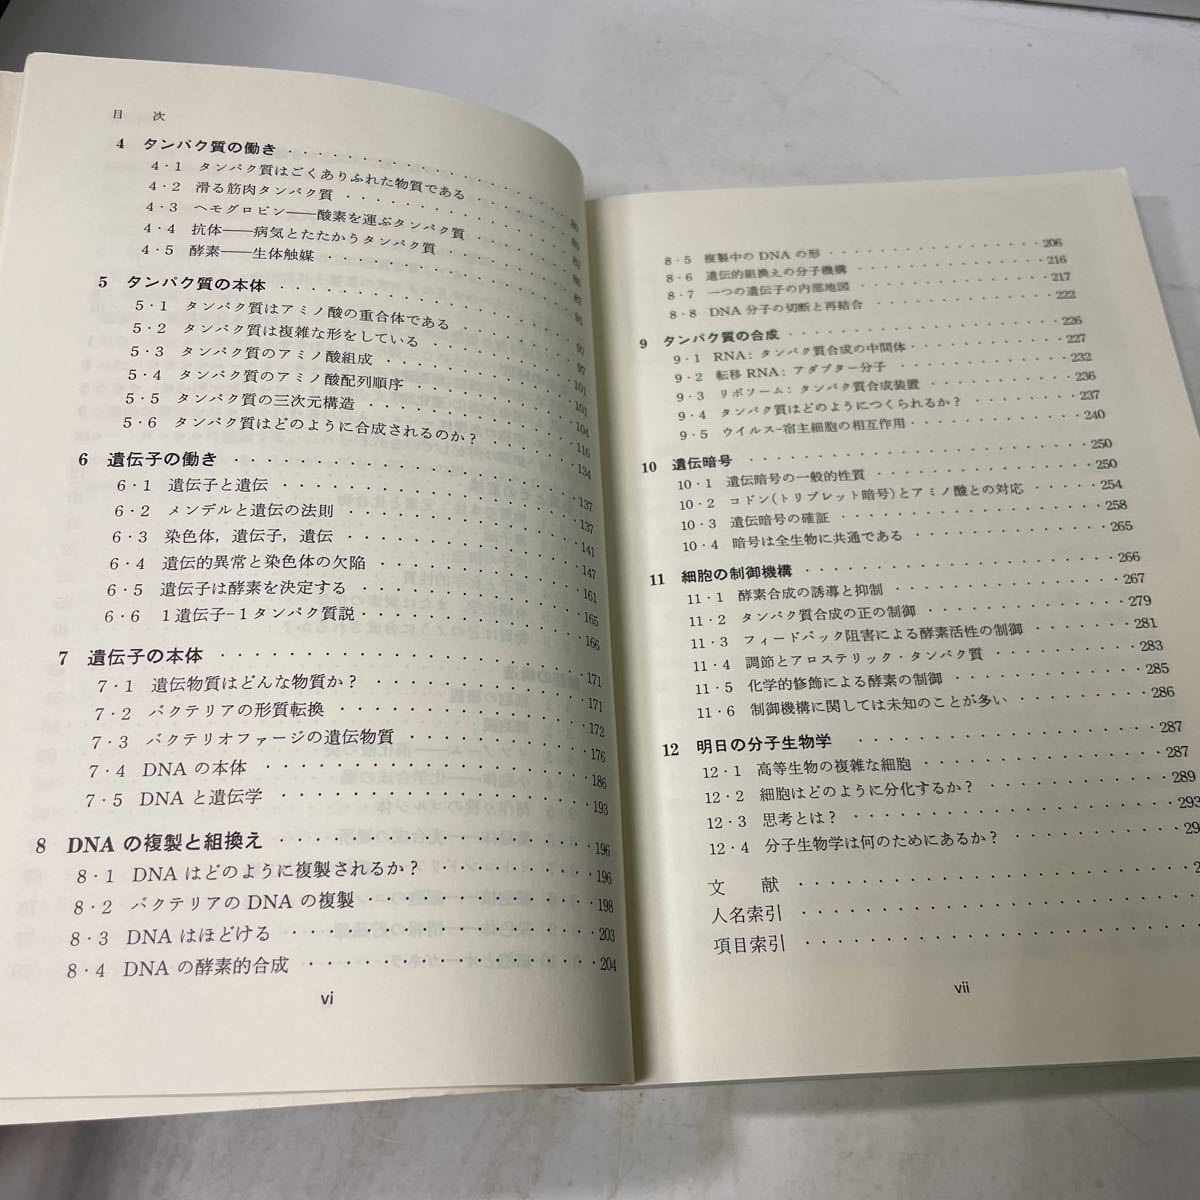 目 次
4 タンパク質の働き
4・1 タンパク質はごくありふれた物質である
4・2 滑る筋肉タンパク質
4・3 ヘモグロビン――酸素を運ぶタンパク質
4・4 抗体――病気とたたかうタンパク質
4・5 酵素――生体触媒
5 タンパク質の本体
5・1 タンパク質はアミノ酸の重合体である
5・2 タンパク質は複雑な形をしている
5・3 タンパク質のアミノ酸組成
5・4 タンパク質のアミノ酸配列順序
5・5 タンパク質の三次元構造
5・6 タンパク質はどのように合成されるのか?
6 遺伝子の働き
6・1 遺伝子と遺伝 137
6・2 メンデルと遺伝の法則 137
6・3 染色体,遺伝子,遺伝 141
6・4 遺伝的異常と染色体の欠陥 147
6・5 遺伝子は酵素を決定する 161
6・6 1遺伝子-1タンパク質説 165
166
7 遺伝子の本体 171
7・1 遺伝物質はどんな物質か? 171
7・2 バクテリアの形質転換 172
7・3 バクテリオファージの遺伝物質 176
7・4 DNA の本体 186
7・5 DNA と遺伝学 193
8 DNA の複製と組換え 196
8・1 DNA はどのように複製されるか? 196
8・2 バクテリアの DNA の複製 198
8・3 DNA はほどける 203
8・4 DNA の酵素的合成 204
vi
8・5 複製中の DNA の形 206
8・6 遺伝的組換えの分子機構 216
8・7 一つの遺伝子の内部地図 217
8・8 DNA 分子の切断と再結合 222
9 タンパク質の合成 226
9・1 RNA: タンパク質合成の中間体 227
9・2 転移 RNA: アダプター分子 232
9・3 リボソーム: タンパク質合成装置 236
9・4 タンパク質はどのようにつくられるか? 237
9・5 ウイルス-宿主細胞の相互作用 240
10 遺伝暗号 250
10・1 遺伝暗号の一般的性質 250
10・2 コドン(トリプレット暗号)とアミノ酸との対応 254
10・3 遺伝暗号の確証 258
10・4 暗号は全生物に共通である 265
11 細胞の制御機構 266
11・1 酵素合成の誘導と抑制 267
11・2 タンパク質合成の正の制御 279
11・3 フィードバック阻害による酵素活性の制御 281
11・4 調節とアロステリック・タンパク質 283
11・5 化学的修飾による酵素の制御 285
11・6 制御機構に関しては未知のことが多い 286
12 明日の分子生物学 287
12・1 高等生物の複雑な細胞 287
12・2 細胞はどのように分化するか? 289
12・3 思考とは? 293
12・4 分子生物学は何のためにあるか?
文 献
人名索引
項目索引
vii